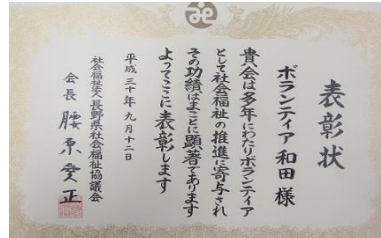 表彰状
ボランティア和田様
貴会は多年にわたりボランティア
として社会福祉の推進に寄与され
その功績はまことに顕著であります
よってここに表彰します
平成三十年九月十二日
社会福祉法人長野県社会福祉協議会
会長 腰原愛正